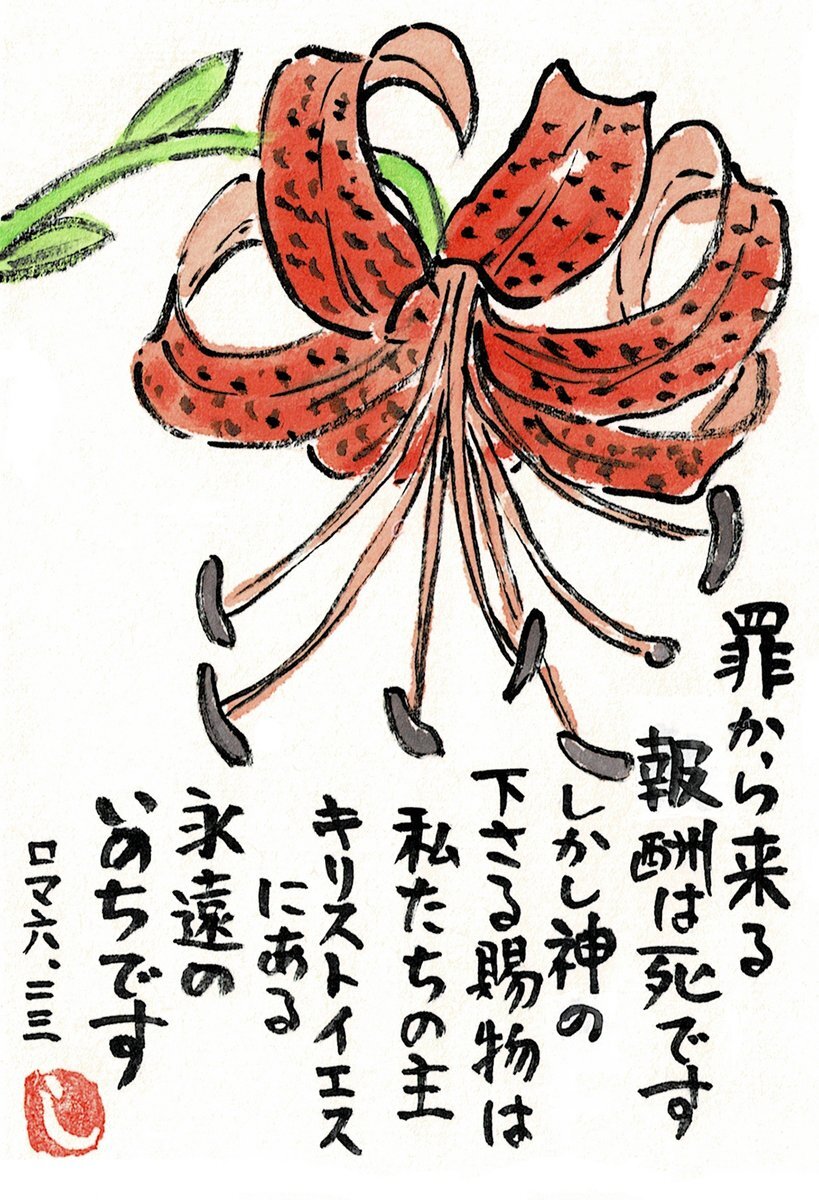 罪から来る
報酬は死です
しかし神の
下さる賜物は
私たちの主
キリストイエス
にある
永遠の
いのちです
ロマ六、二三
し